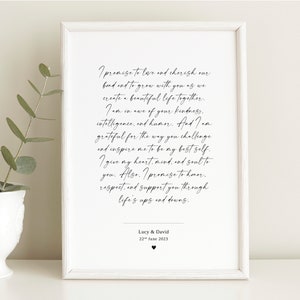 I promise to love and cherish our
bond and to grow with you as we
create a beautiful life together.
I am in awe of your kindness,
intelligence, and humor. And I am
grateful for the way you challenge
and inspire me to be my best self.
I give my heart, mind, and soul to
you. Also, I promise to honor,
respect, and support you through
life's ups and downs.
Lucy & David
22nd June 2023